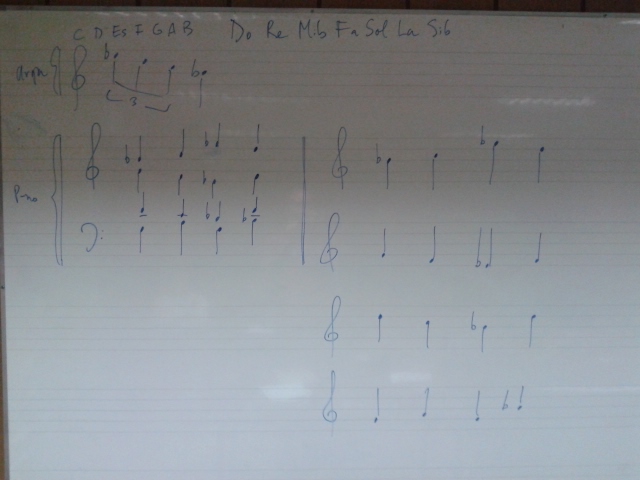 C D Es F G A B Do Re Mib Fa Sol La Sib
arpa
3
P-no